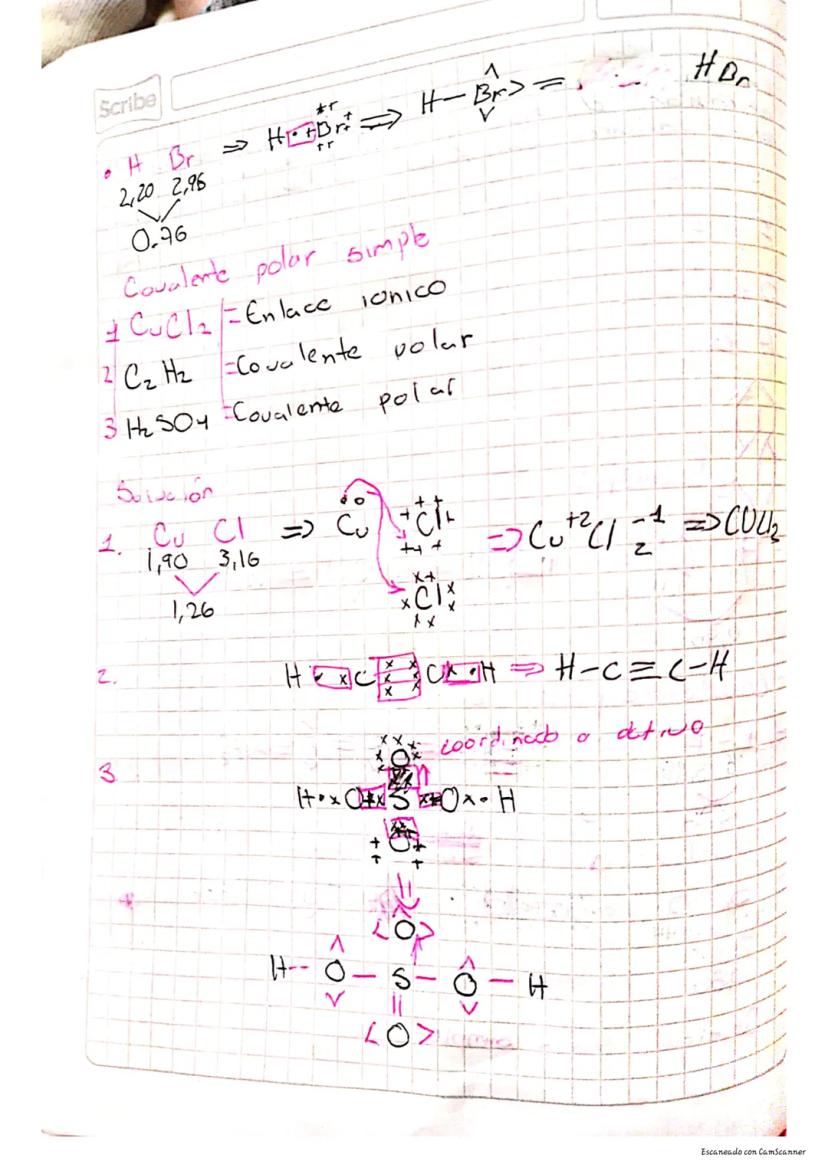 Scribe
• H Br ⇒ H • + Br ⇒ H – Br = HBr
2,20 2,96
0.76
Covalente polar simple
1 CuCl2 = Enlace ionico
2 C2 H2 = Covalente volar
3 H2SO4 = Covalente polar
Solución
1. Cu Cl ⇒ Cu Cl ⇒ Cu+2 Cl 2 -1 ⇒ CUCl2
1,90 3,16
Cl
1,26
2. H • x C x x x x x x C x • H ⇒ H – C ≡ C – H
coordinado o dativo
3 O
H • x O + x S x + O x • H
O
O
H -- O – S – O – H
O
Escaneado con CamScanner